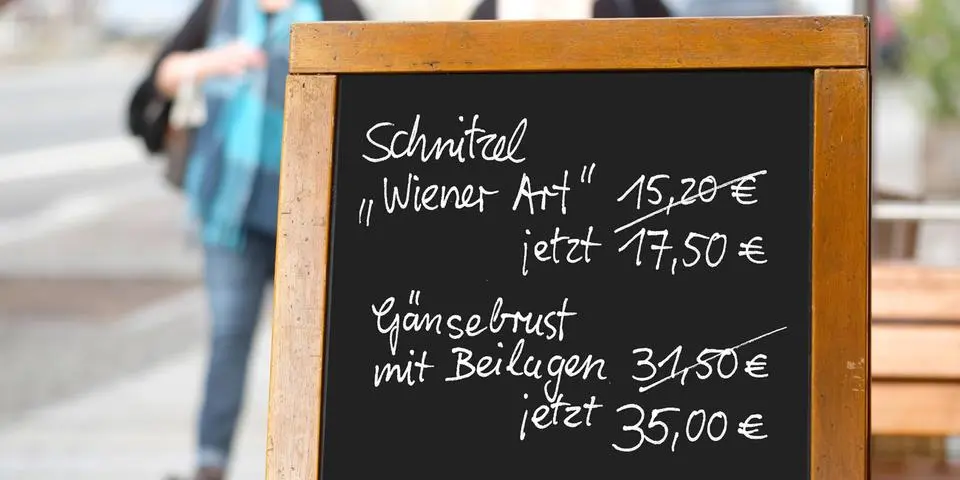 Schnitzel
„Wiener Art“ 15,20 €
jetzt 17,50 €
Gänsebrust
mit Beilagen 31,50 €
jetzt 35,00 €